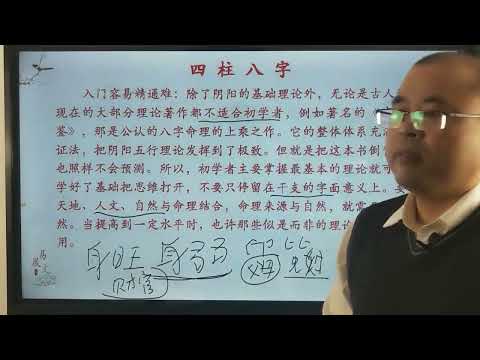 四柱八字
入门容易精通难：除了阴阳的基础理论外，无论是古人
现在的大部分理论著作都不适合初学者，例如著名的
鉴》，那是公认的八字命理的上乘之作。它的整体体系充
证法，把阴阳五行理论发挥到了极致。但就是把这本书倒
也照样不会预测。所以，初学者主要掌握最基本的理论就可
学好了基础把思维打开，不要只停留在干支的字面意义上。
天地、人文、自然与命理结合，命理来源与自然，就需
然。当提高到一定水平时，也许那些似是而非的理论
用。
身旺 身弱 印 比
财官 父母 兄弟